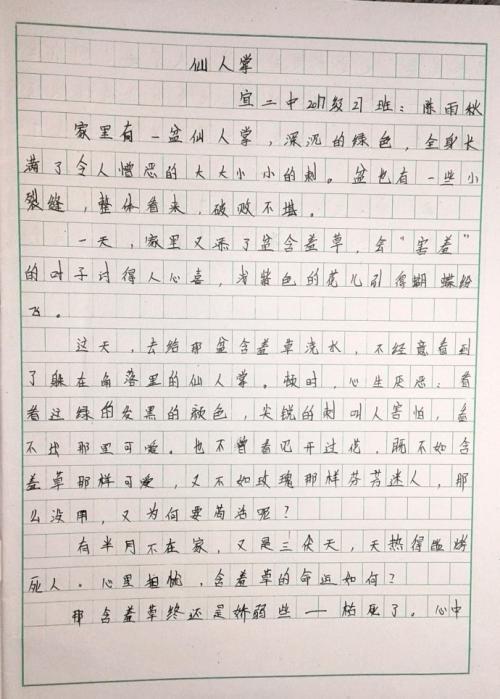 仙人掌
宜二中2017级27班：陈雨秋
家里有一盆仙人掌，深沉的绿色，全身长
满了令人憎恶的大大小小的刺。盆也有一些小
裂缝，整体看来，破败不堪。
一天，家里又添了盆含羞草，会“害羞”
的叶子讨得人心喜，浅紫色的花儿引得蝴蝶纷
飞。
过天，去给那盆含羞草浇水，不经意看到
了躲在角落里的仙人掌。顿时，心生厌恶：看
着这绿的发黑的颜色，尖锐的刺叫人害怕，看
不出那里可爱。也不曾看见开过花，既不如含
羞草那样可爱，又不如玫瑰那样芬芳迷人，那
么没用，又为何要苟活呢？
有半月不在家，又是三伏天，天热得温烤
死人。心里担忧，含羞草的命运如何？
那含羞草终还是娇弱些——枯死了。心中